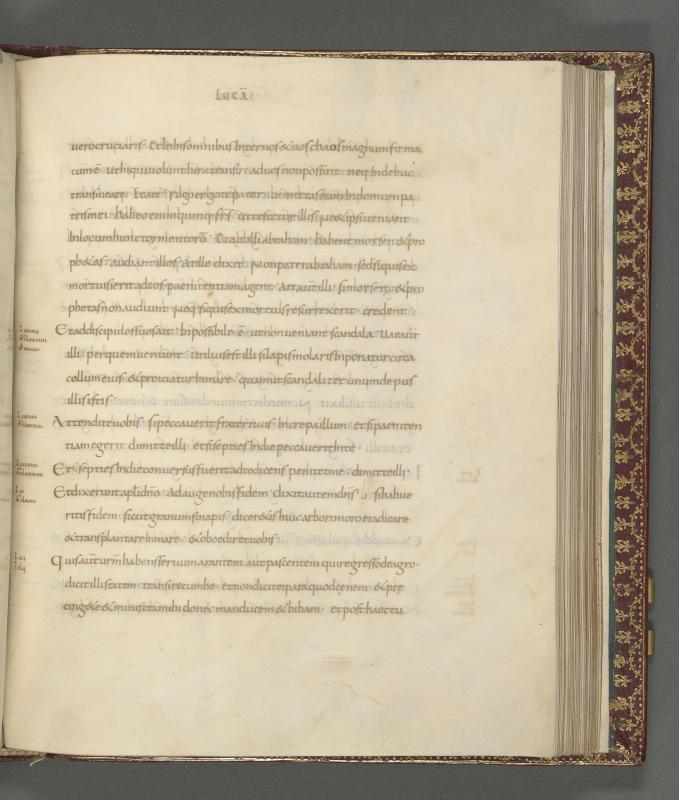 LUCĀ
uero cruciaris · Et In his omnibus Inter nos & uos chaos magnum firma
tum ē · ut hi qui uolunt hinc transire ad uos non possint · neq; Inde huc
transmeare · Et ait · Rogo ergo te pater ut mittas eum In domum pa
tris mei · habeo enim quinq; frs · ut testetur illis ne & ipsi ueniant
In locum hunc tormentorū · Et ait illi abraham · habent mosen & pro
ph&as · audiant illos · At ille dixit · Non pater abraham · sed si quis ex
mortuis ierit ad eos · paenitentiam agent · Ait aut illi · si mosen & pro
phetas non audiunt · neq; si quis ex mortuis resurrexerit · credent ·
Et ad discipulos suos ait · Inpossibile ē ut non ueniant scandala · Uae aut
illi · per quem ueniunt · utilius est illi si lapis molaris Inponatur circa
collum eius · & proiciatur In mare · quam ut scandalizet unum de pus
illis istis
Attendite uobis · si peccauerit frater tuus · Increpa illum · et si paeniten
tiam egerit dimitte illi · et si septies In die peccauerit In te ·
Et septies In die conuersus fuerit ad te dicens · penitet me · dimitte illi ·
Et dixerunt apli dno · Adauge nobis fidem · dixit autem dns · si habue
ritis fidem · sicut granum sinapis · dicer&is huic arbori moro eradicare
& transplantare In mare · & oboediret uobis
Quis aut urm habens seruum arantem aut pascentem qui regresso de agro ·
dicit illi statim · transi recumbe · et non dicit ei · para quod cenem · & pre
cinge te & ministra mihi donec manducem & bibam · et post haec tu